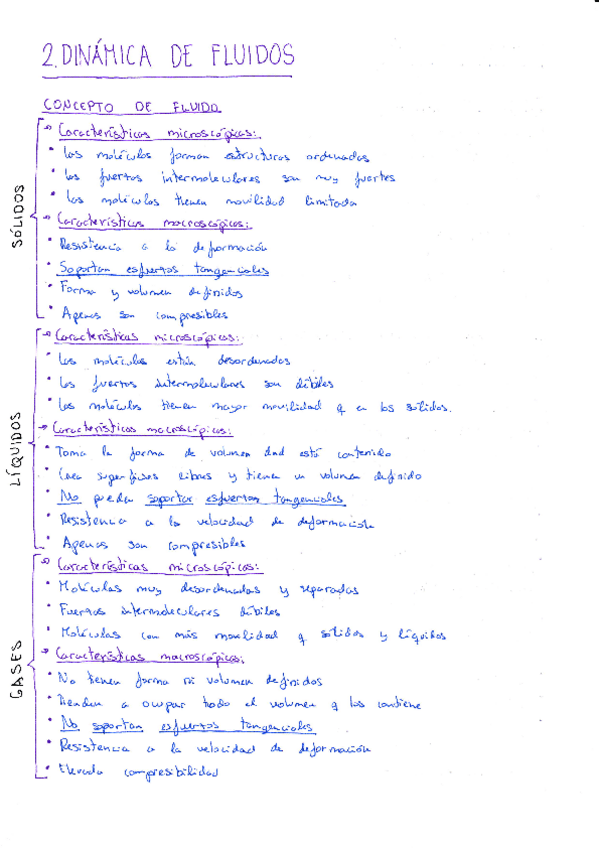 2. DINÁMICA DE FLUIDOS
CONCEPTO DE FLUIDO
SÓLIDOS
Características microscópicas:
• Las moléculas forman estructuras ordenadas
• Las fuerzas intermoleculares son muy fuertes
• Las moléculas tienen movilidad limitada
Características macroscópicas:
• Resistencia a la deformación
• Soportan esfuerzos tangenciales
• Forma y volumen definidos
• Apenas son compresibles
LÍQUIDOS
Características microscópicas:
• Las moléculas están desordenadas
• Las fuerzas intermoleculares son débiles
• Las moléculas tienen mayor movilidad q en los sólidos.
Características macroscópicas:
• Toma la forma de volumen dnd está contenido
• Crea superficies libres y tienen un volumen definido
• No pueden soportar esfuerzos tangenciales
• Resistencia a la velocidad de deformación
• Apenas son compresibles
GASES
Características microscópicas:
• Moléculas muy desordenadas y separadas
• Fuerzas intermoleculares débiles
• Moléculas con más movilidad q sólidos y líquidos
Características macroscópicas:
• No tienen forma ni volumen definidos
• Tienden a ocupar todo el volumen q los contiene
• No soportan esfuerzos tangenciales
• Resistencia a la velocidad de deformación
• Elevada compresibilidad